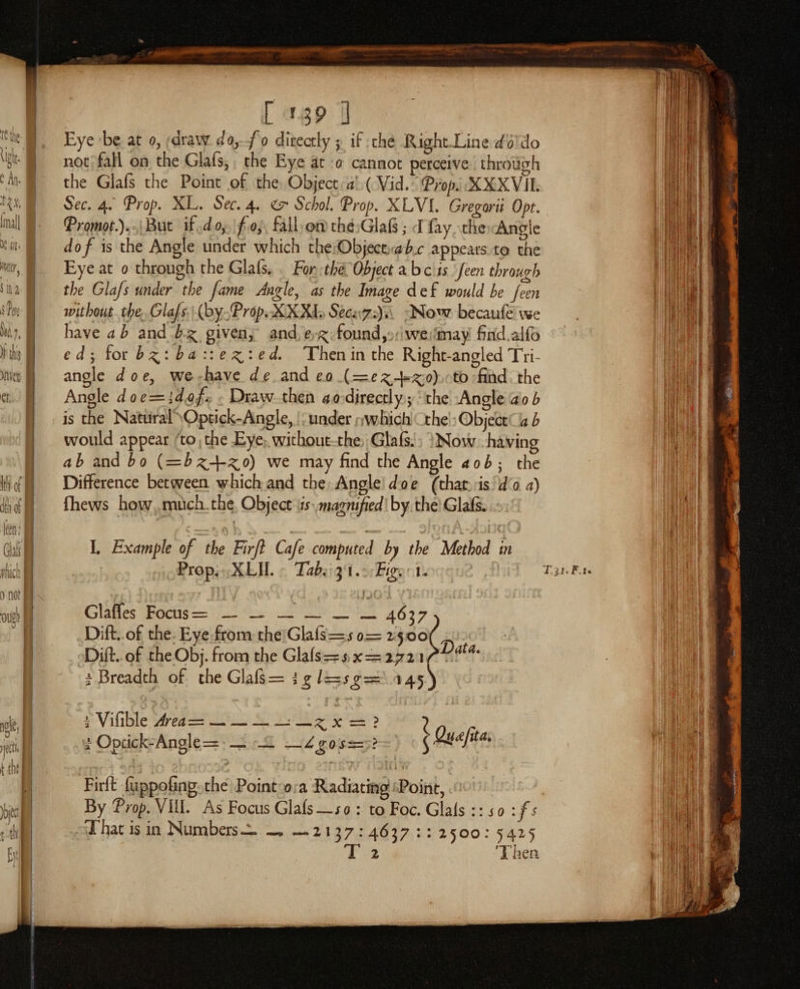 [ 139 ]
Eye be at o, draw do, fo directly ; if the Right Line do do
not fall on the Glaſs, the Eye at o cannot perceive through
the Glaſs the Point of the Object a (Vid. Prop. XXXVII.
Sec. 4. Prop. XL. Sec. 4. & Schol. Prop. XLVI. Gregorii Opt.
Promot.). But if do, fo, fall on the Glaſs ; I ſay, the Angle
dof is the Angle under which the Object abc appears to the
Eye at o through the Glaſs. For the Object abc is ſeen through
the Glaſs under the ſame Angle, as the Image def would be ſeen
without the Glaſs (by Prop. XXXI. Sec. 7.). Now becauſe we
have ab and bz given, and ez found, we may find alſo
ed ; for bz : ba :: ez : ed. Then in the Right-angled Tri-
angle doe, we have de and eo (=ez+zo) to find the
Angle doe=½dof. Draw then ao directly ; the Angle aob
is the Natural Optick-Angle, under which the Object ab
would appear to the Eye, without the Glaſs. Now having
ab and bo (=bz+zo) we may find the Angle aob ; the
Difference between which and the Angle doe (that is doa)
ſhews how much the Object is magnified by the Glaſs.
I. Example of the Firſt Caſe computed by the Method in
Prop. XLII. Tab. 31. Fig. 1.
T. 31. F. 1.
Glaſſes Focus= — — — — — — 4637
Diſt. of the Eye from the Glaſs=so=2500
Diſt. of the Obj. from the Glaſs=sx=2721
Data.
½ Breadth of the Glaſs=½gl=sg=145
½ Viſible Area= — — — — —zx=?
½ Optick-Angle= — — —∠gos=?
Quæſita.
Firſt ſuppoſing the Point o a Radiating Point,
By Prop. VIII. As Focus Glaſs—so : to Foc. Glaſs :: so : fs
That is in Numbers— — —2137 : 4637 :: 2500 : 5425
T 2 Then